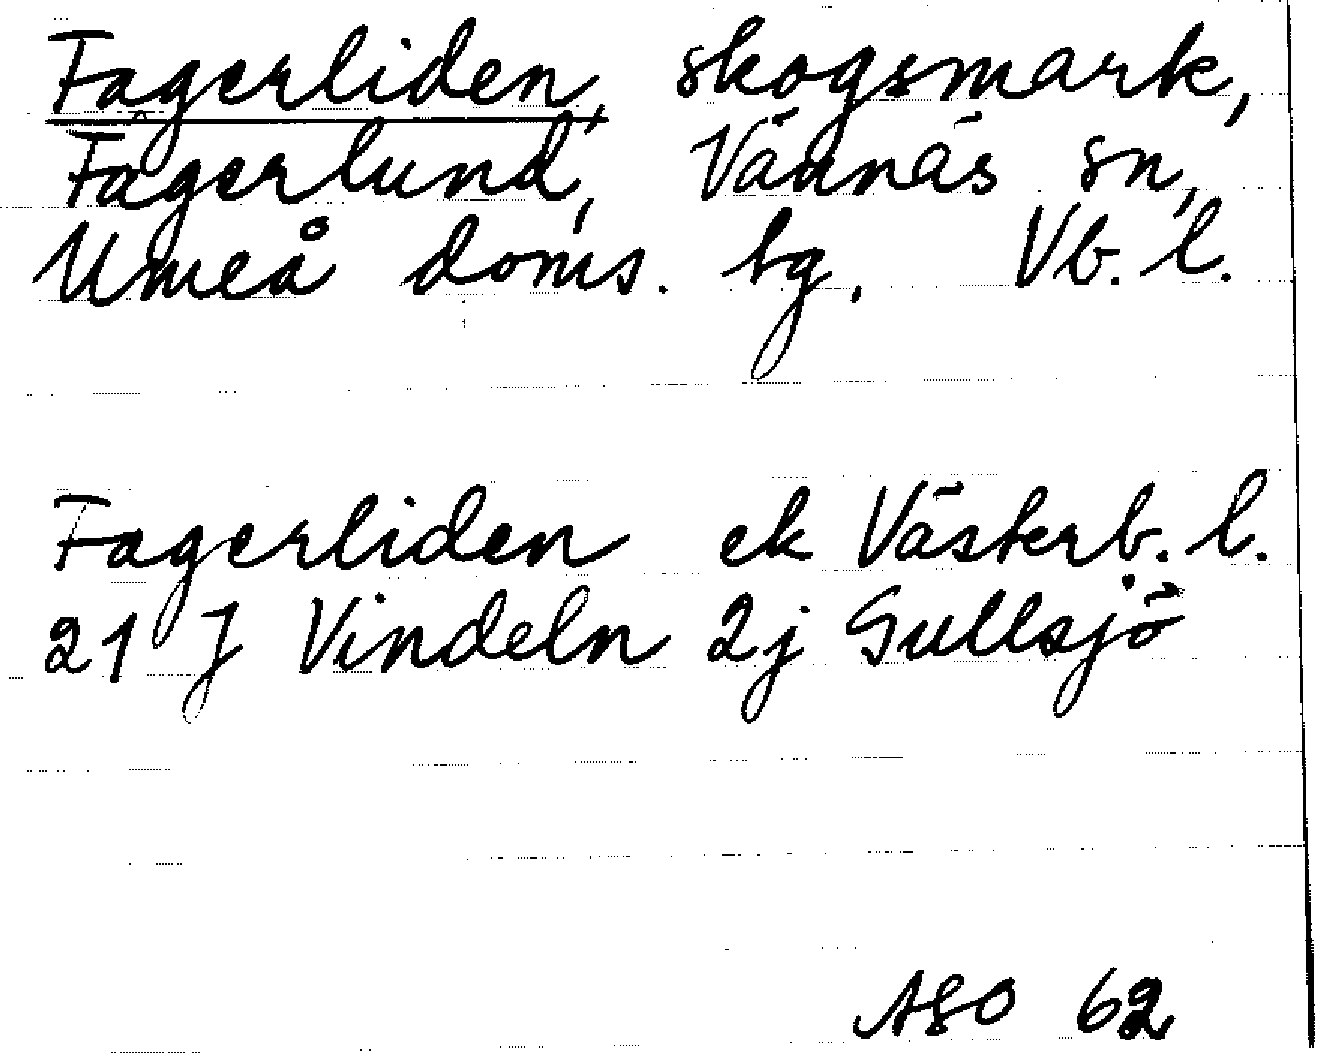 Fagerliden, skogsmark,
Fagerlund, Vännäs sn,
Umeå doms. hg, Vb. l.
Fagerliden ek Västerb. l.
21 J Vindeln 2j Gullsjö
ASO 62